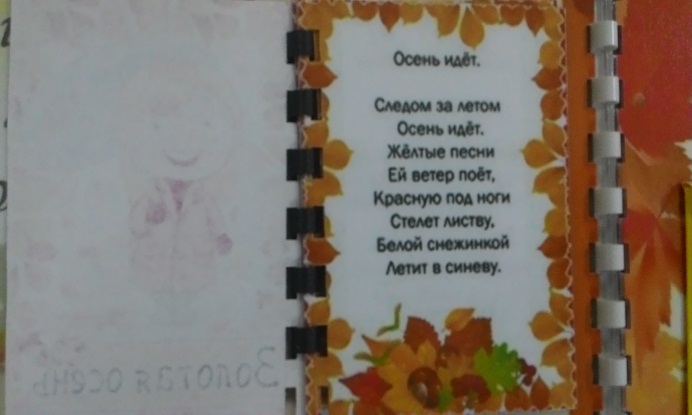 Золотая осень
Осень идёт.
Следом за летом
Осень идёт.
Жёлтые песни
Ей ветер поёт,
Красную под ноги
Стелет листву,
Белой снежинкой
Летит в синеву.